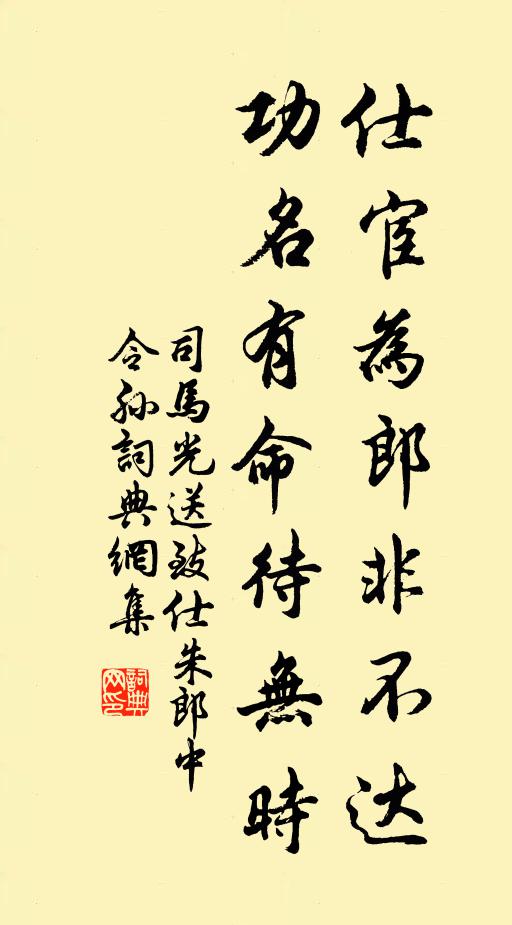 仕宦為郎非不达
功名有命待無時
司馬光送致仕朱郎中
令孫詞典網集
詞典网印